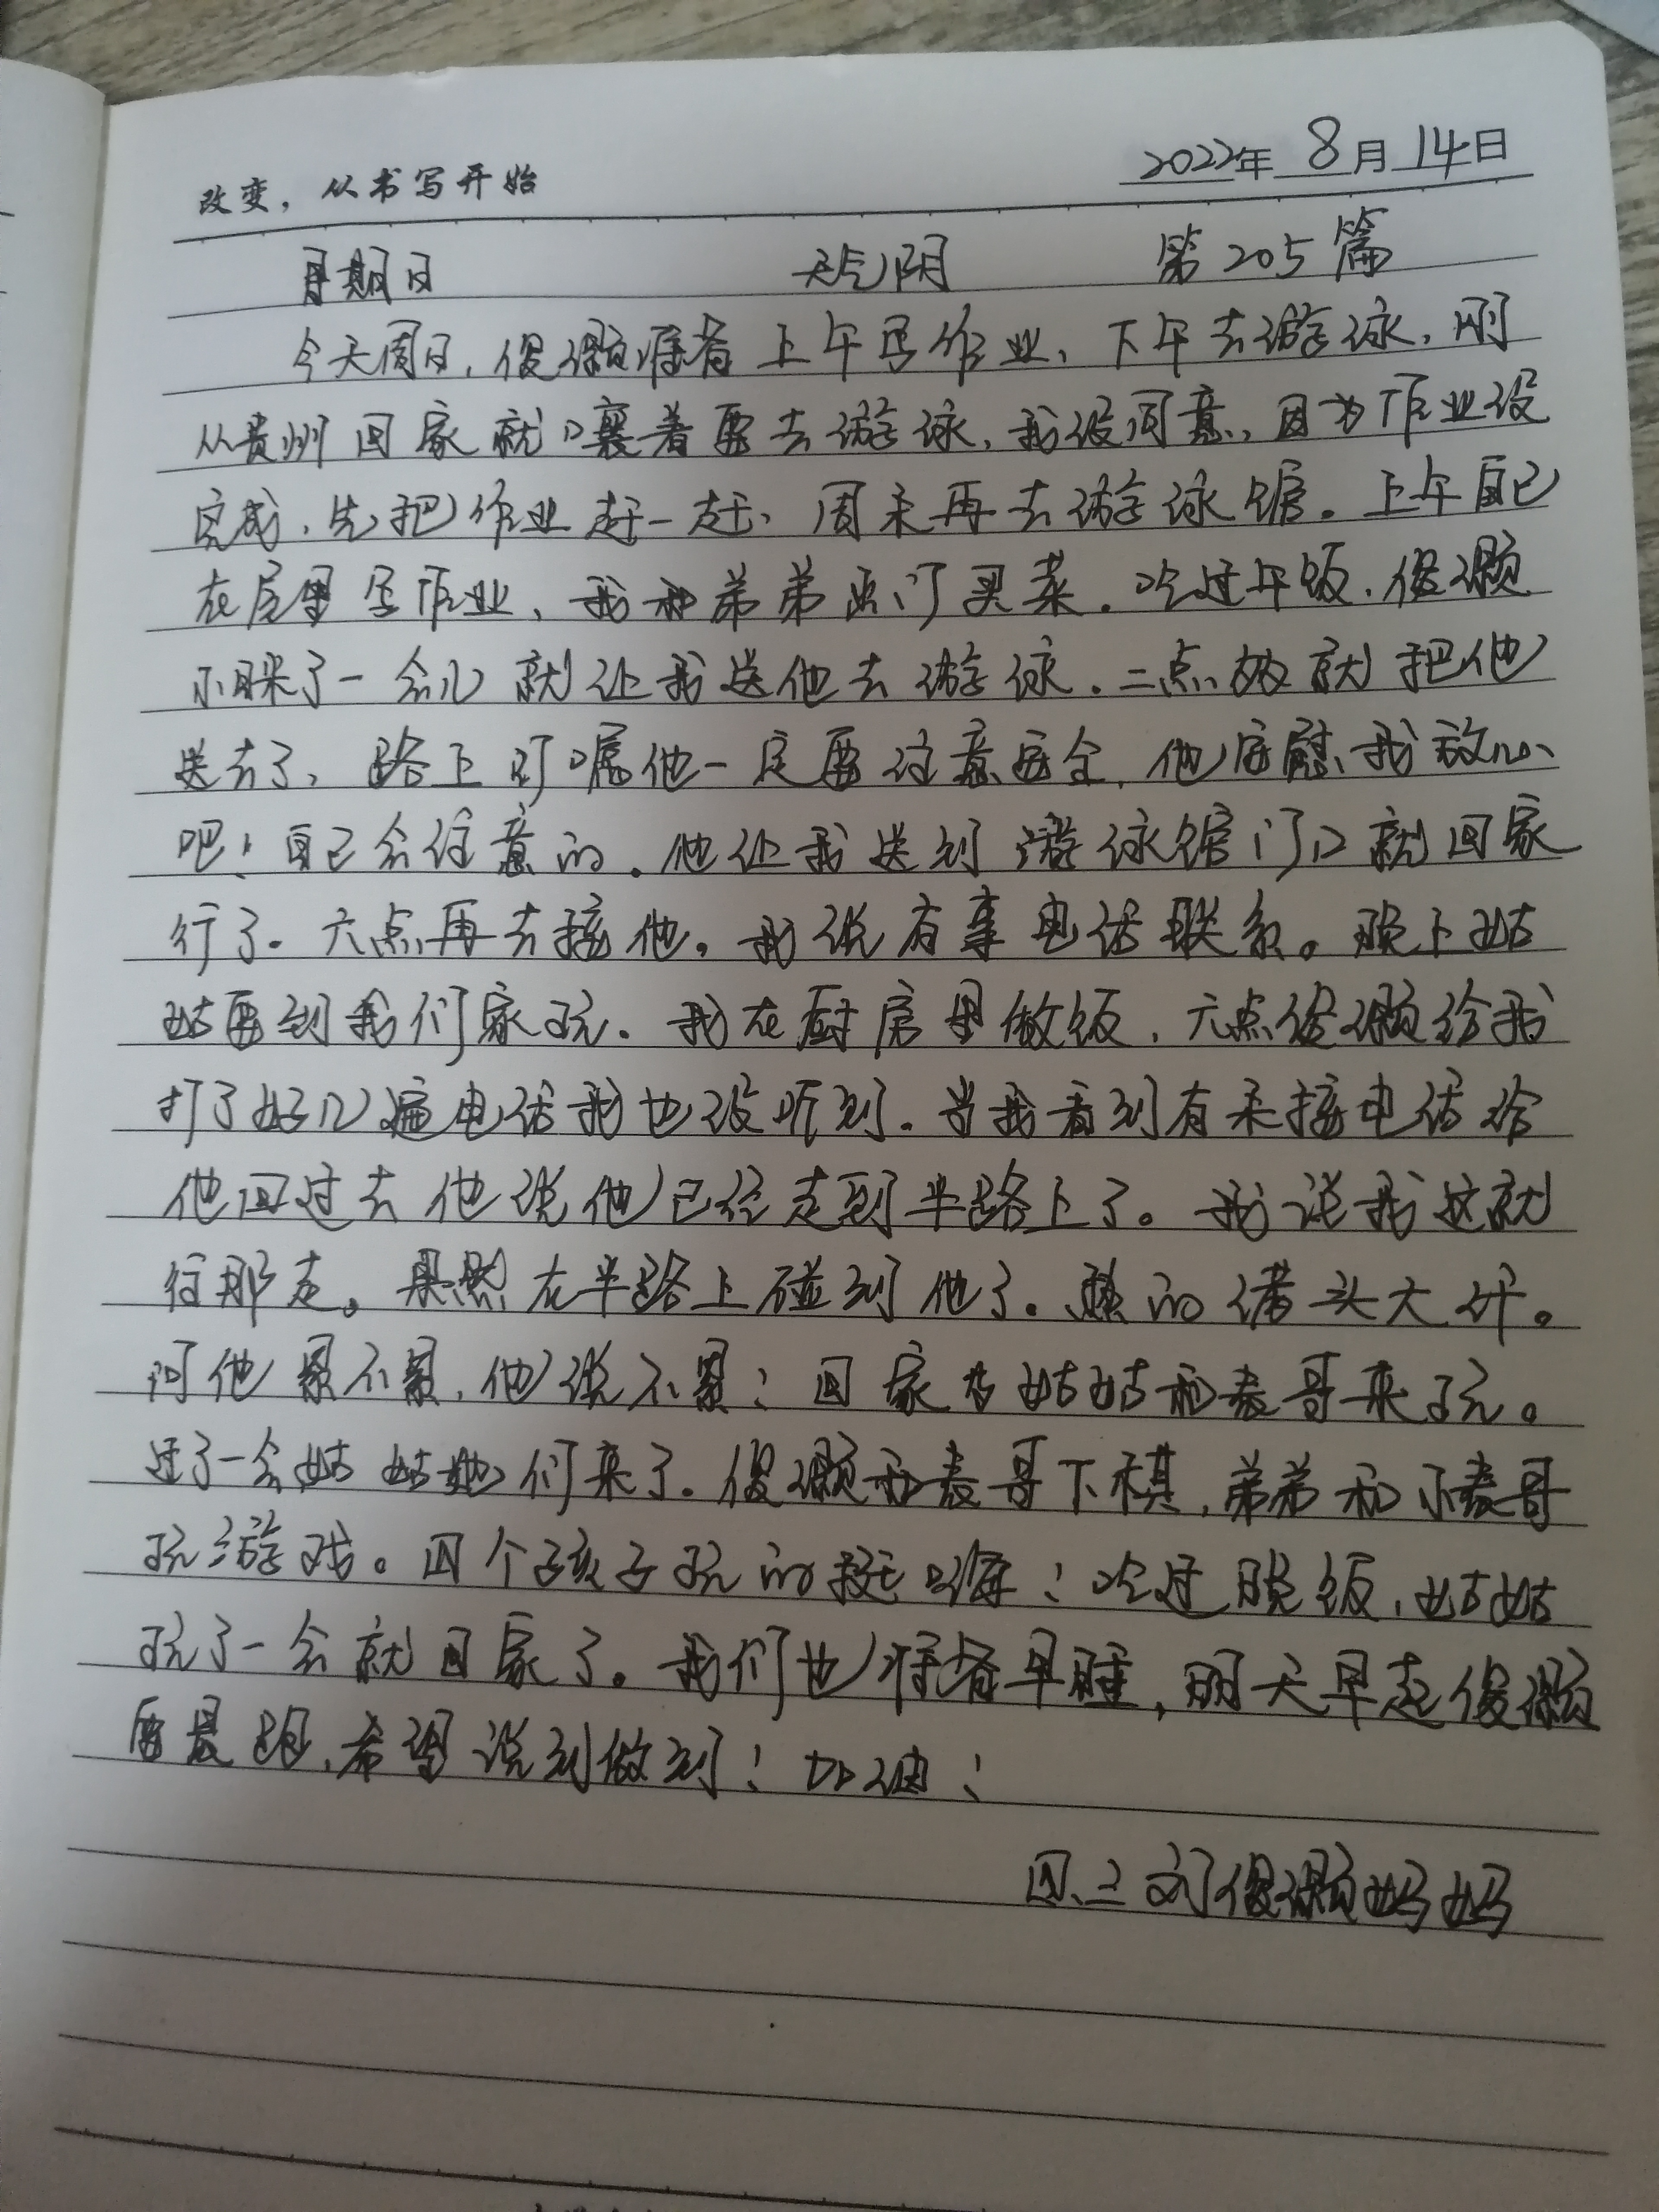 改变，从书写开始
2022年 8月 14日
星期日 天气阴 第205篇
今天周日，俊灏准备上午写作业、下午去游泳，刚
从贵州回家就嚷着要去游泳，我没同意，因为作业没
完成，先把作业赶一赶，周末再去游泳馆。上午自己
在屋里写作业，我和弟弟出门买菜。吃过午饭，俊灏
小眯了一会儿就让我送他去游泳。二点多就把他
送去了，路上叮嘱他一定要注意安全，他安慰我放心
吧！自己会注意的。他让我送到游泳馆门口就回家
行了。六点再去接他。我说有事电话联系。晚上姑
姑要到我们家玩。我在厨房里做饭，六点俊灏给我
打了好几遍电话我也没听到。当我看到有未接电话给
他回过去他说他已经走到半路上了。我说我这就
往那走。果然在半路上碰到他了。热的满头大汗。
问他累不累，他说不累！回家等姑姑和表哥来玩。
过了一会姑姑她们来了。俊灏和表哥下棋，弟弟和小表哥
玩游戏。四个孩子玩的挺嗨！吃过晚饭，姑姑
玩了一会就回家了。我们也准备早睡，明天早起俊灏
要晨跑，希望说到做到！加油！
四、二刘俊灏妈妈